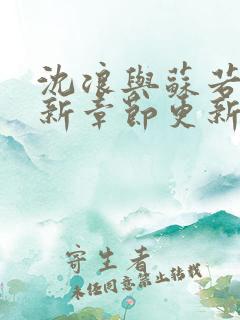 沈浪與蘇若
新章節更新
寄生者
未经同意禁止转载